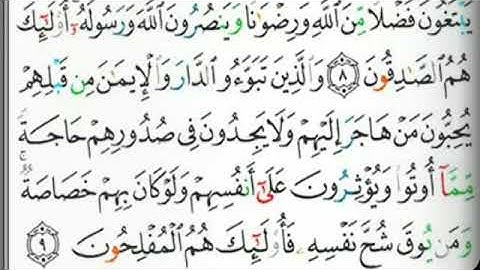 يَبْتَغُونَ فَضْلًا مِّنَ ٱللَّهِ وَرِضْوَٰنًا وَيَنصُرُونَ ٱللَّهَ وَرَسُولَهُۥٓ أُو۟لَٰٓئِكَ
هُمُ ٱلصَّٰدِقُونَ ٨ وَٱلَّذِينَ تَبَوَّءُو ٱلدَّارَ وَٱلْإِيمَٰنَ مِن قَبْلِهِمْ
يُحِبُّونَ مَنْ هَاجَرَ إِلَيْهِمْ وَلَا يَجِدُونَ فِى صُدُورِهِمْ حَاجَةً
مِّمَّآ أُوتُوا۟ وَيُؤْثِرُونَ عَلَىٰٓ أَنفُسِهِمْ وَلَوْ كَانَ بِهِمْ خَصَاصَةٌ
وَمَن يُوقَ شُحَّ نَفْسِهِۦ فَأُو۟لَٰٓئِكَ هُمُ ٱلْمُفْلِحُونَ ٩